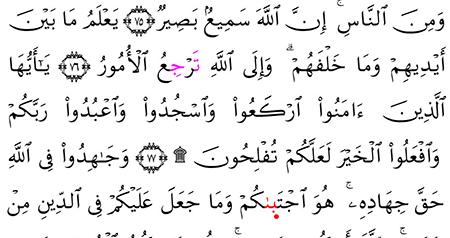 وَمِنَ ٱلنَّاسِۚ إِنَّ ٱللَّهَ سَمِيعُۢ بَصِيرٌ ﴿٧٥﴾ يَعْلَمُ مَا بَيْنَ
أَيْدِيهِمْ وَمَا خَلْفَهُمْۗ وَإِلَى ٱللَّهِ تَرْجِعُ ٱلْأُمُورُ ﴿٧٦﴾ يَٰٓأَيُّهَا
ٱلَّذِينَ ءَامَنُواْ ٱرْكَعُواْ وَٱسْجُدُواْ وَٱعْبُدُواْ رَبَّكُمْ
وَٱفْعَلُواْ ٱلْخَيْرَ لَعَلَّكُمْ تُفْلِحُونَ ﴿٧٧﴾ ۩ وَجَٰهِدُواْ فِى ٱللَّهِ
حَقَّ جِهَادِهِۦۚ هُوَ ٱجْتَبىٰكُمْ وَمَا جَعَلَ عَلَيْكُمْ فِى ٱلدِّينِ مِنْ